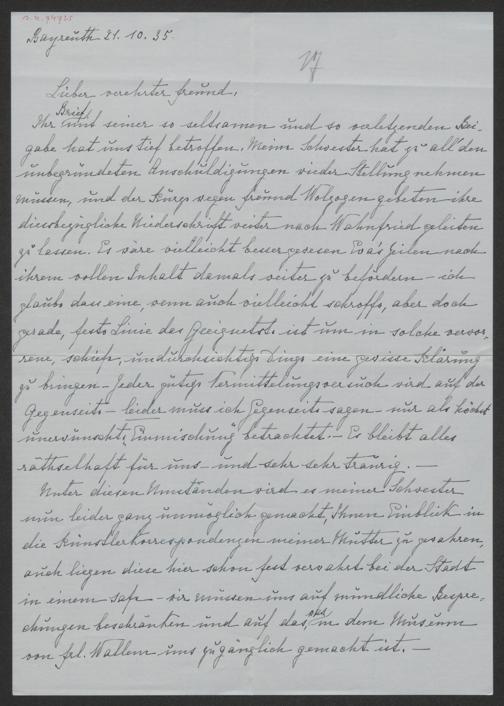 Bayreuth 21.10.35.
Lieber verehrter Freund,
Ihr Brief mit seiner so seltsamen und so verletzenden Bei-
gabe hat uns tief betroffen. Meine Schwester hat zu all' den
unbegründeten Anschuldigungen wieder Stellung nehmen
müssen, und der Kürze wegen Freund Wolzogen gebeten ihre
diesbezügliche Niederschrift weiter nach Wahnfried geleiten
zu lassen. Es wäre vielleicht besser gewesen Eva's Zeilen nach
ihrem vollen Inhalt damals weiter zu befördern – ich
glaube dass eine, wenn auch vielleicht schroffe, aber doch
grade, feste Linie das Geeignetste ist um in solche verwor-
rene, schiefe, undurchsichtige Dinge eine gewisse Klärung
zu bringen – Jeder gütige Vermittelungsversuch wird auf der
Gegenseite – leider muss ich Gegenseite sagen – nur als höchst
unerwünschte Einmischung betrachtet. – Es bleibt alles
räthselhaft für uns – und sehr sehr traurig. –
Unter diesen Umständen wird es meiner Schwester
nun leider ganz unmöglich gemacht, Ihnen Einblick in
die Künstlerkorrespondenzen meiner Mutter zu gewähren,
auch liegen diese hier schon fest verwahrt bei der Stadt
in einem Safe – wir müssen uns auf mündliche Bespre-
chungen beschränken und auf das, in dem Museum
von Frl. Wallem uns zugänglich gemacht ist. –